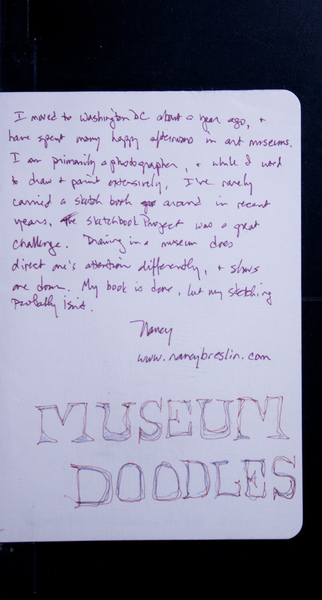 I moved to Washington DC about a year ago, +
have spent many happy afternoons in art museums.
I am primarily a photographer, + while I used
to draw + paint extensively, I've rarely
carried a sketch book around in recent
years. The Sketchbook Project was a great
challenge. Drawing in a museum does
direct one's attention differently, + slows
one down. My book is done, but my sketching
probably isn't.
Nancy
www.nancybreslin.com
MUSEUM
DOODLES